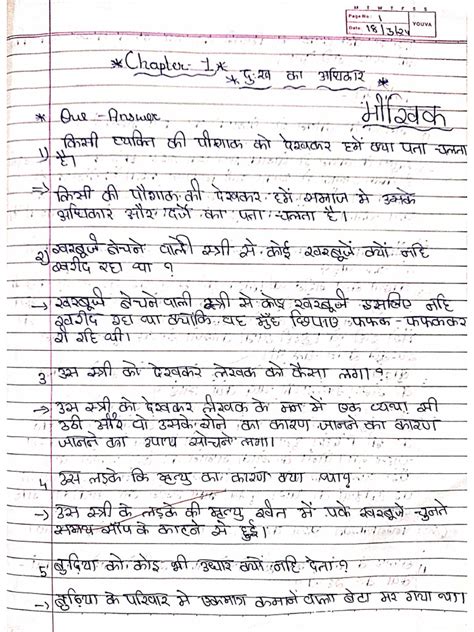 Page No. 1
Date 18/3/24
YOUVA
* Chapter - 1 *
* दुःख का अधिकार
मौखिक
* Que - Answer
1) किसी व्यक्ति की पौशाक को देखकर हमें क्या पता चलता
है।
=> किसी की पौशाक की देखकर हमें समाज मे उसके
अधिकार और दर्जे का पता चलता है।
2) खरबूजे बेचने वाली स्त्री से कोई खरबूजे क्यों नहि
खरीद रहा था ?
-> खरबूजे बेचने वाली स्त्री से कोइ खरबूजे इसलिए नहि
खरीद रहा था क्योंकि वह मुँह छिपाए फफक-फफककर
रो रहि थी।
3 उस स्त्री को देखकर लेखक को कैसा लगा। ?
-> उस स्त्री को देखकर लेखक के मन में एक व्यथा सी
उठी और वो उसके रोने का कारण जानने का कारण
जानते का उपाय सोचने लगा।
4 उस लडके कि मृत्यु का कारण क्या था?
-> उस स्त्री के लडके की मृत्यु खेत में पके खरबूजे चुनते
समय साँप के काटने से हुई।
5 बुढिया को कोइ भी उधार क्यों नहि देता ?
-> बुढ़िया के परिवार मे एकमात्र कमाने वाला बेटा मर गया था।